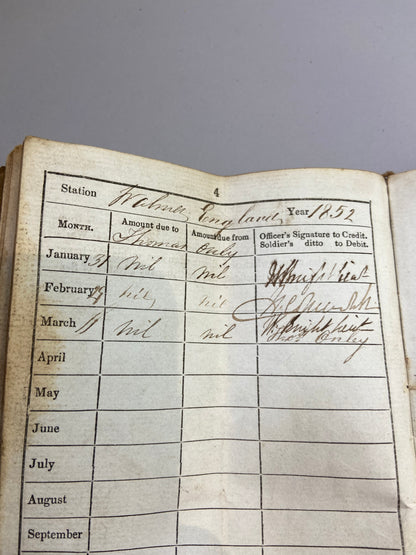 4
Station Walmer England Year 1852
MONTH. Amount due to Amount due from Officer's Signature to Credit.
Soldier's ditto to Debit.
Thomas Only
January 31 nil nil W Knight Lieut
February nil nil
March 11 nil nil W Knight Lieut
Thos Only
April
May
June
July
August
September